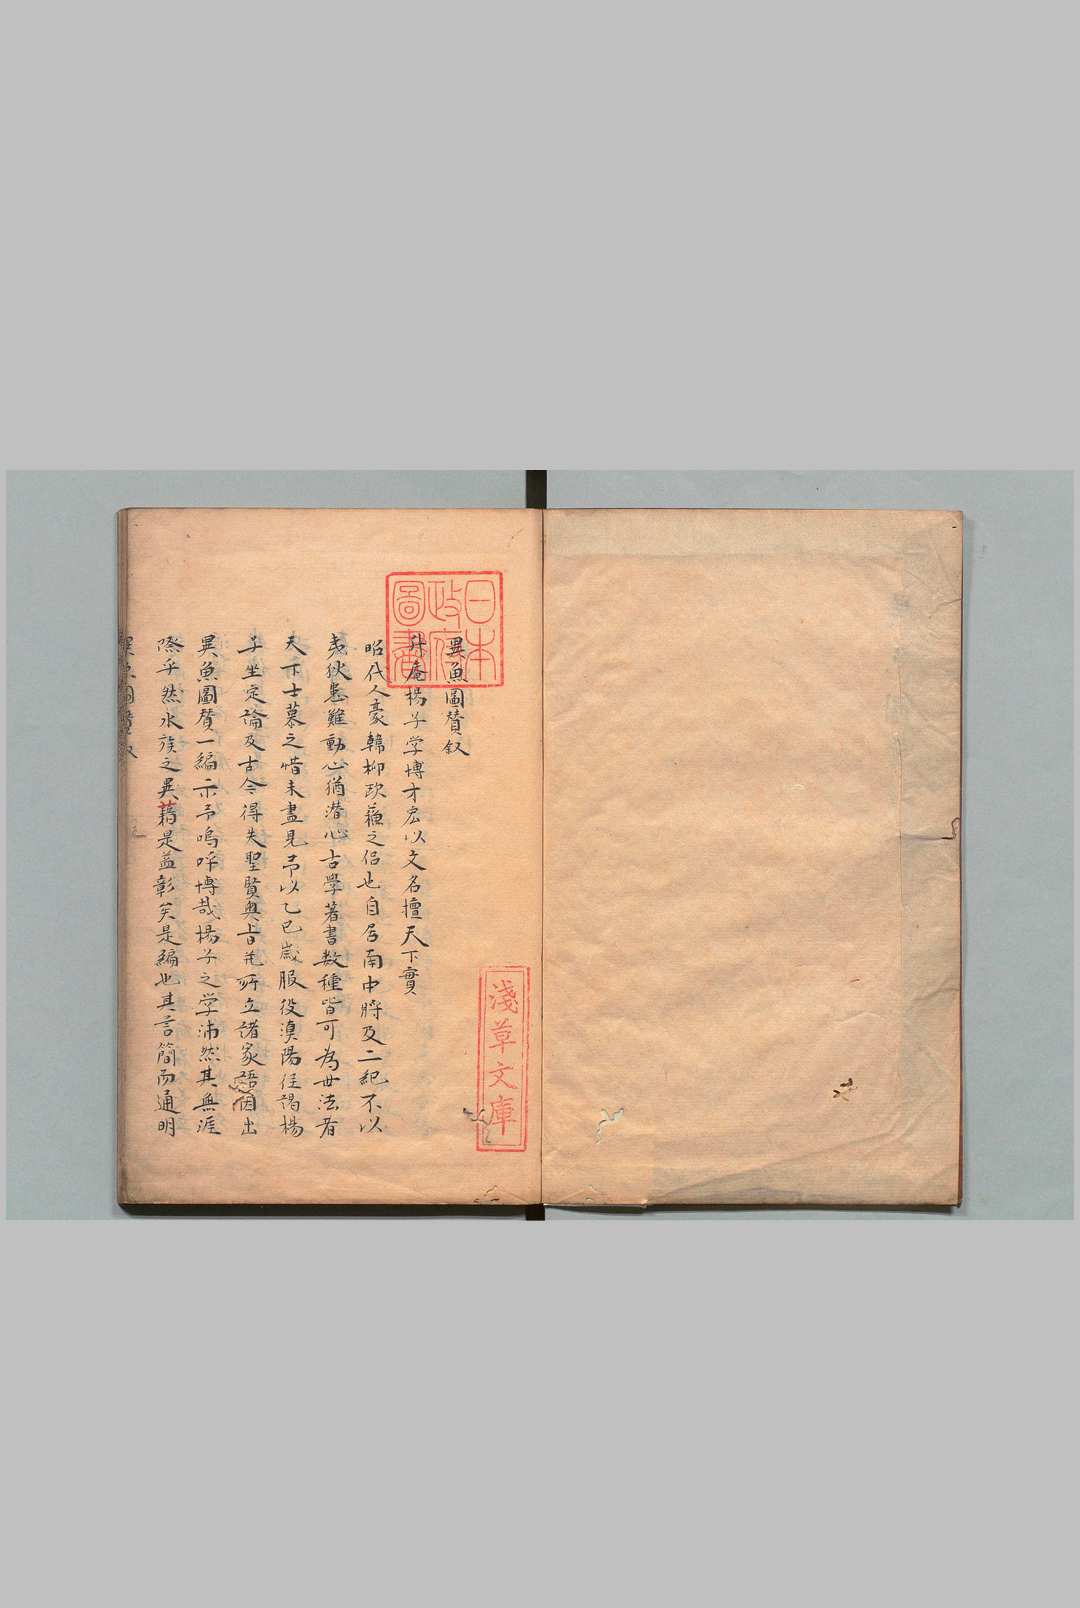 異魚圖贊叙
升庵楊子学博才宏以文名擅天下實
昭代人豪韓柳欧蘓之侣也自居南中將及二紀不以
夷狄患難動心猶潜心古學著書数種皆可為世法者
天下士慕之惜未盡見予以乙巳歲服役滇陽徃謁楊
子坐定論及古今得失聖賢奥旨先所立諸家語因出
異魚圖贊一編示予嗚呼博哉楊子之学沛然其無涯
際乎然水族之異藉是益彰矣是編也其言簡而通明
異魚圖贊叙
日本
政府
圖書
淺草文庫